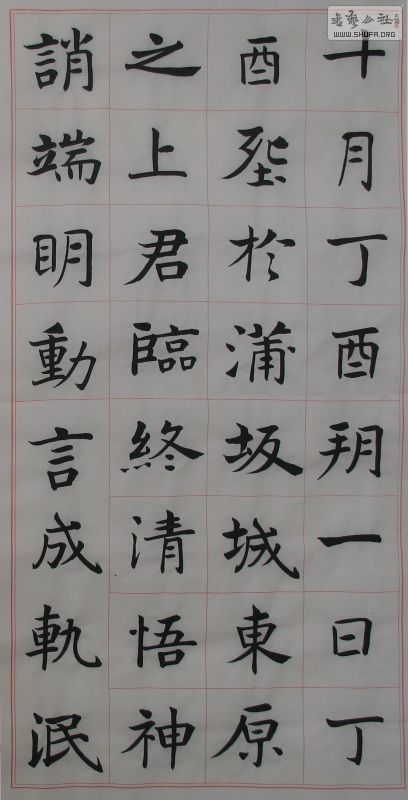 十月丁酉朔一日丁
酉於蒲坂城東原
之上君臨終清悟神
誚端明動言成軌泯
书艺公社
WWW.SHUFA.ORG